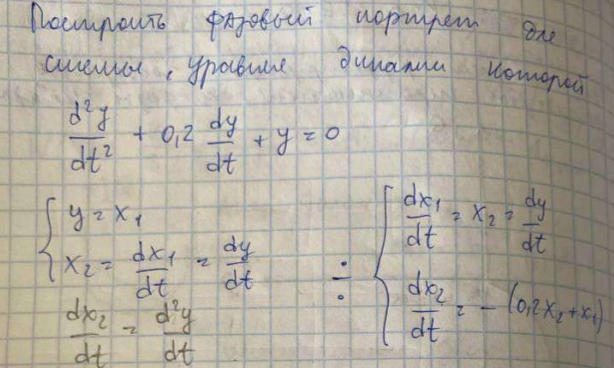 Построить фазовый портрет для
системы, уравнение динамики которой
d²y/dt² + 0,2 dy/dt + y = 0
{ y = x₁
x₂ = dx₁/dt = dy/dt
dx₂/dt = d²y/dt
÷
{ dx₁/dt = x₂ = dy/dt
dx₂/dt = - (0,2x₂ + x₁)